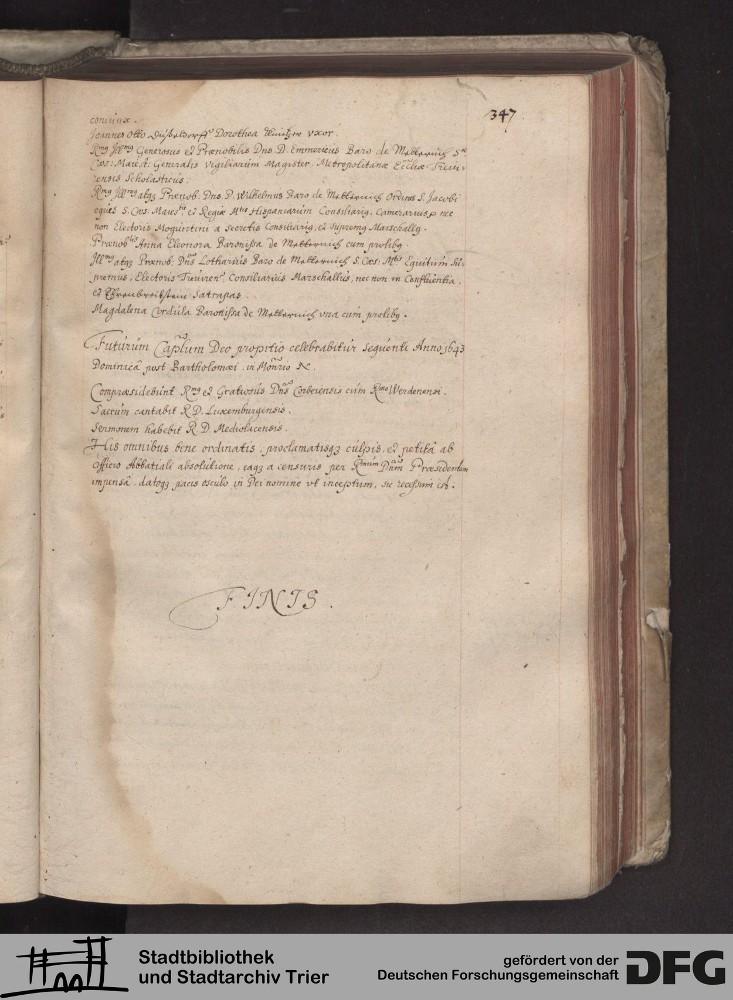 347
conviviæ.
Joannes Otto Düsseldorff Dorothea uxor.
Rmg Illmg Generosus et Prænobilis Dns D. Emmericus Baro de Metternich Sæ
Cæs: Maiestt: Generalis Vigiliarum Magister, Metropolitanæ Eccliæ Trevi-
rensis Scholasticus.
Rmg Illmg atqz Prænob: Dns D. Wilhelmus Baro de Metternich Ordinis S. Jacobi
eques S. Cæs. Maiestis et Regiæ Mtis Hispaniarum Consiliarig, Camerarius, nec
non Electoris Moguntini a Secretis Consiliarig, et Supremg Marschallg.
Prænoblis Anna Eleonora Baronissa de Metternich cum prolibg.
Illmg atqz Prænob: Dns Lotharius Baro de Metternich S. Cæs: Mtis Equitum Su-
premus, Electoris Treviren: Consiliarius Marschallus, nec non in Confluentia
et Ehrenbreitstein Satrapas.
Magdalena Cordula Baronissa de Metternich una cum prolibg.
Futurum Caplum Deo propitio celebrabitur sequenti Anno 1643
Dominicâ post Bartholomæi in Monrio N.
Compræsidebunt Rmg et Gratiosus Dns Corbeiensis cum Rmo Werdenensi.
Sacrum cantabit R D. Luxemburgensis.
Sermonem habebit R. D. Mediolacensis.
His omnibus bene ordinatis, proclamatisqz culpis, et petitâ ab
Officio Abbatiali absolutione, eaqz a censuris per Rmum Dnum Præsidentem
impensâ, datoqz pacis osculo in Dei nomine ut inceptum, sic recessum est.
FINIS.
Stadtbibliothek
und Stadtarchiv Trier
gefördert von der
Deutschen Forschungsgemeinschaft
DFG